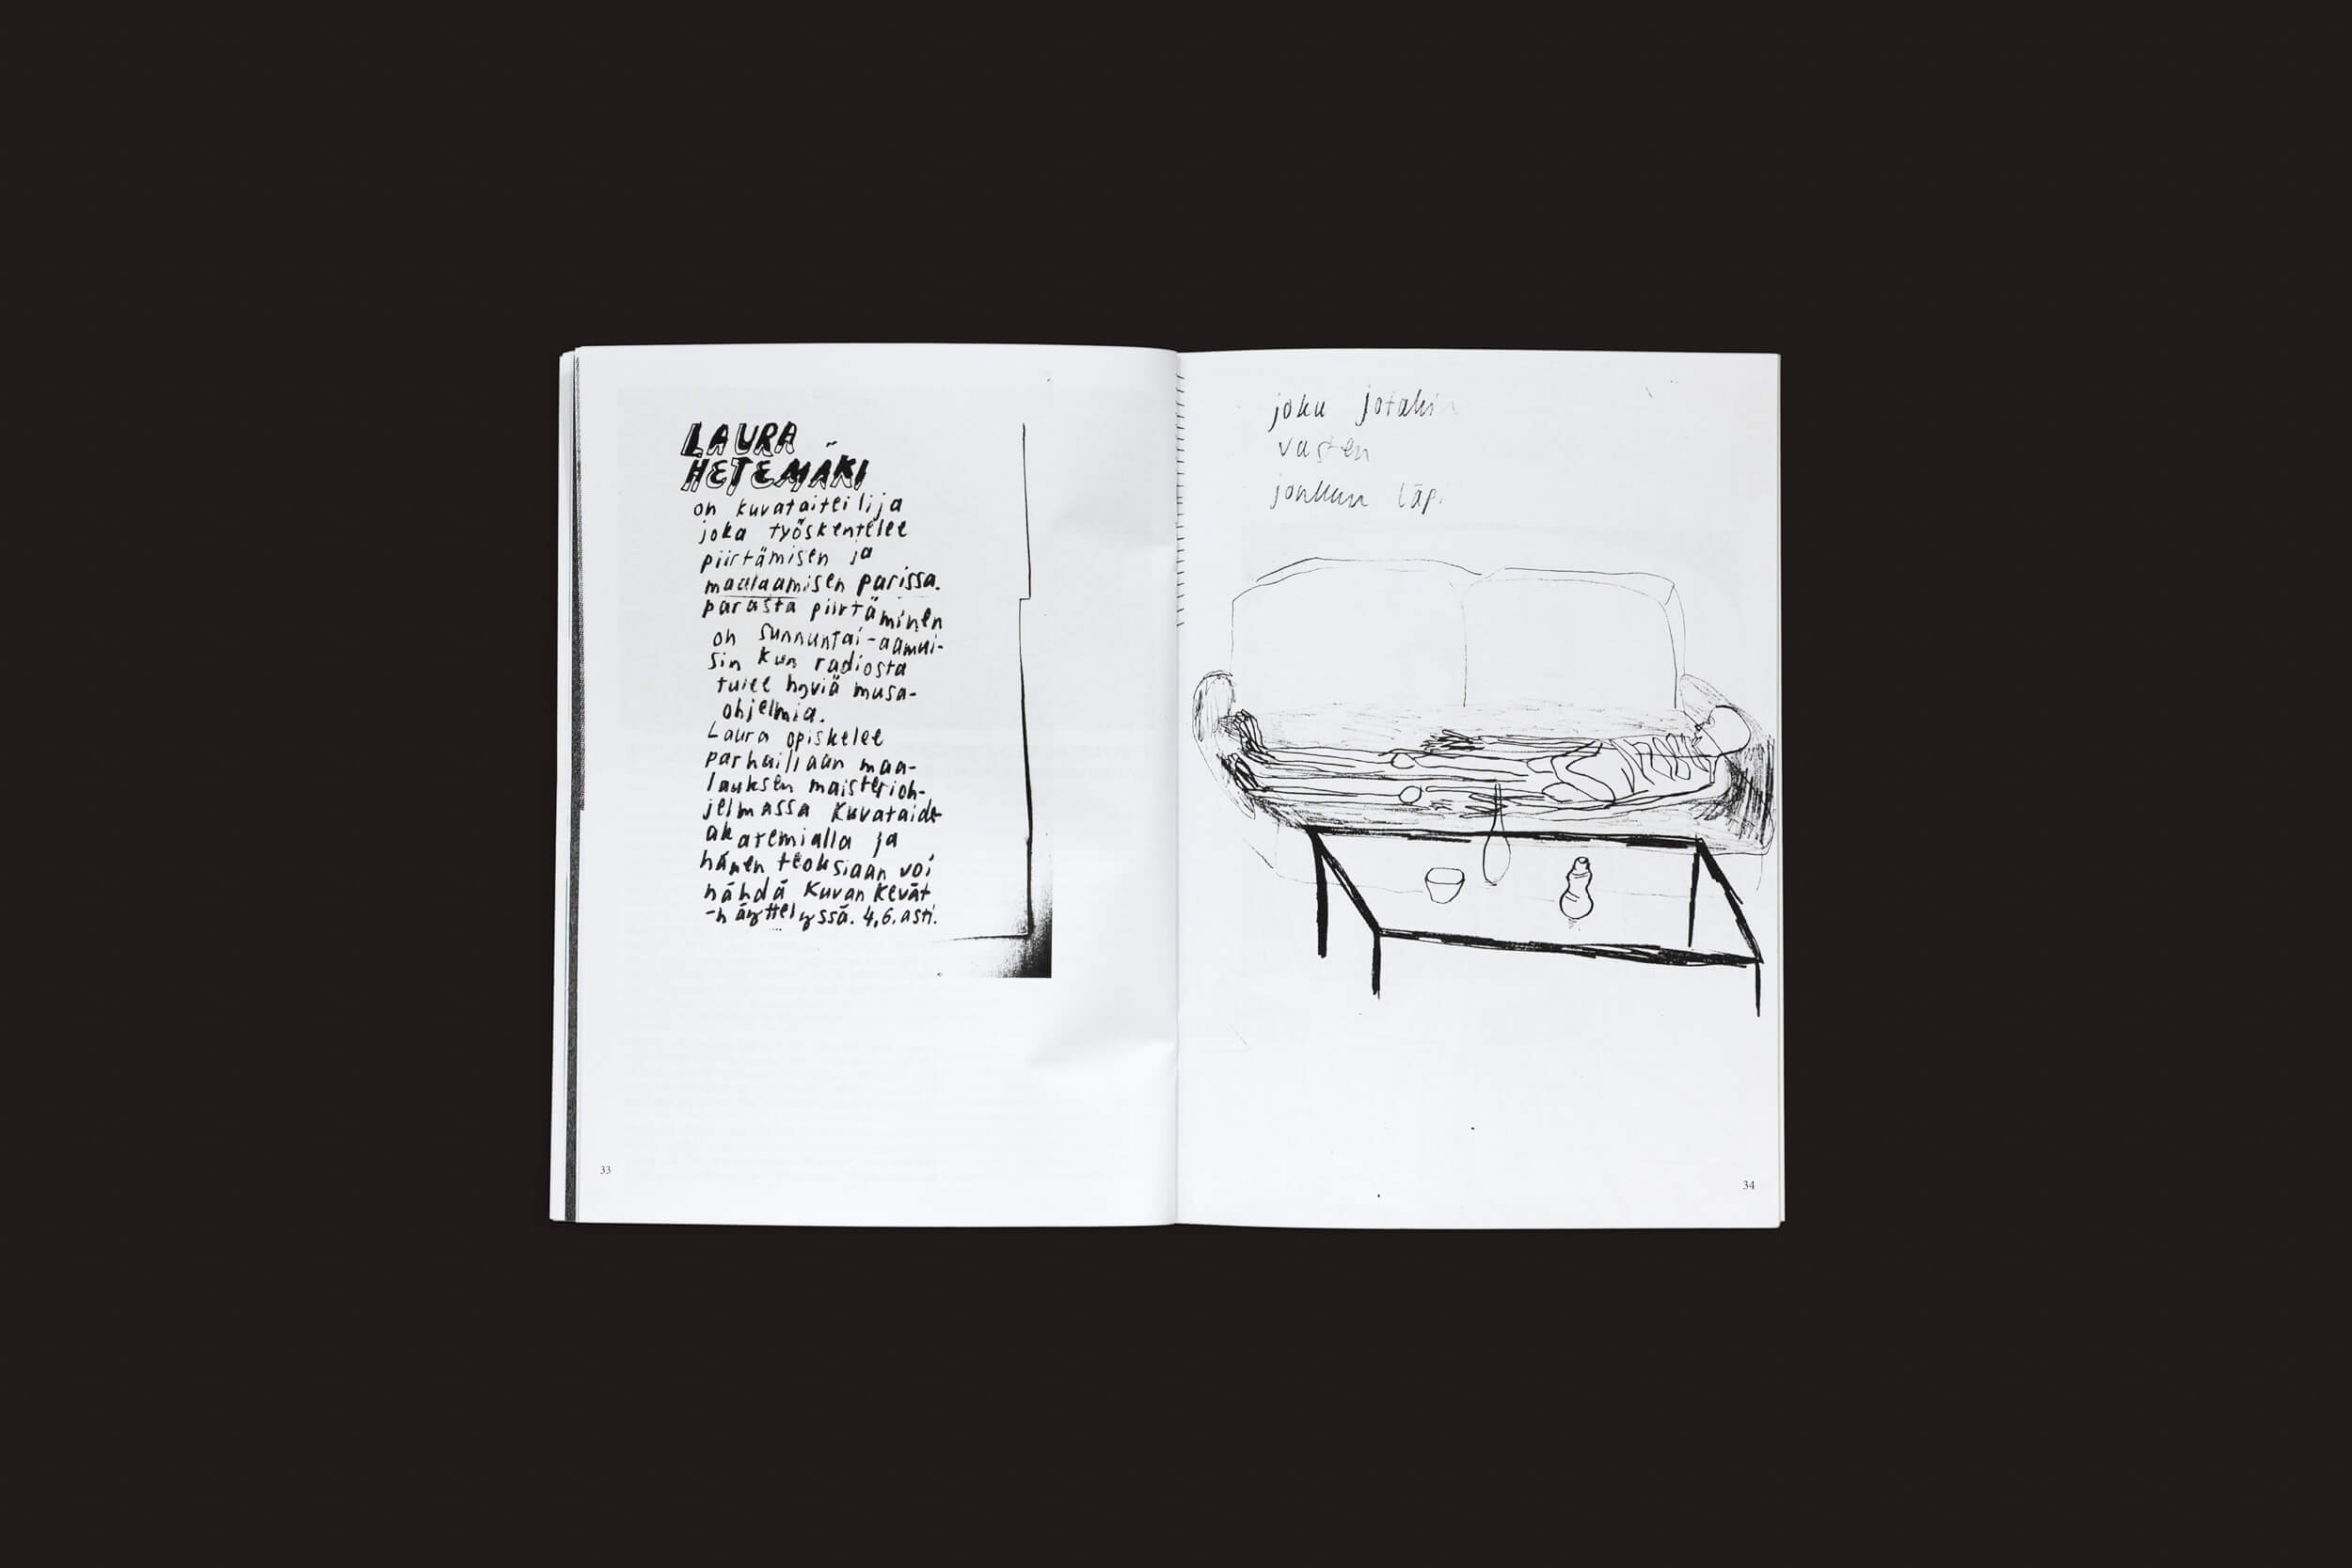 LAURA
HETEMÄKI
on kuvataiteilija
joka työskentelee
piirtämisen ja
maalaamisen parissa.
parasta piirtäminen
on sunnuntai-aamui-
sin kun radiosta
tulee hyviä musa-
ohjelmia.
Laura opiskelee
parhaillaan maa-
lauksen maisterioh-
jelmassa Kuvataide
akatemialla ja
hänen teoksiaan voi
nähdä Kuvan Kevät
-näyttelyssä. 4.6. asti.
33
joku jotakin
vasten
jonkun läpi
34